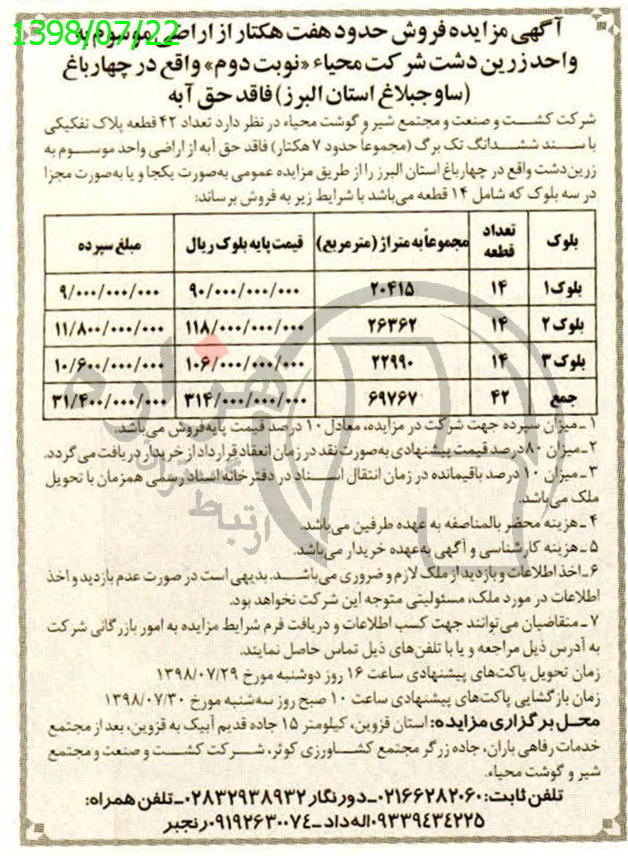 1398/07/22
آگهی مزایده فروش حدود هفت هکتار از اراضی موسوم به
واحد زرین دشت شرکت محیاء «نوبت دوم» واقع در چهارباغ
(ساوجبلاغ استان البرز) فاقد حق آبه
شرکت کشت و صنعت و مجتمع شیر و گوشت محیاء در نظر دارد تعداد ۴۲ قطعه پلاک تفکیکی
با سند ششدانگ تک برگ (مجموعاً حدود ۷ هکتار) فاقد حق آبه از اراضی واحد موسوم به
زرین‌دشت واقع در چهارباغ استان البرز را از طریق مزایده عمومی به‌صورت یکجا و یا به‌صورت مجزا
در سه بلوک که شامل ۱۴ قطعه می‌باشد با شرایط زیر به فروش برساند:
بلوک تعداد قطعه مجموعاً به متراژ (مترمربع) قیمت پایه بلوک ریال مبلغ سپرده
بلوک ۱ ۱۴ ۲۰۴۱۵ ۹۰/۰۰۰/۰۰۰/۰۰۰ ۹/۰۰۰/۰۰۰/۰۰۰
بلوک ۲ ۱۴ ۲۶۳۶۲ ۱۱۸/۰۰۰/۰۰۰/۰۰۰ ۱۱/۸۰۰/۰۰۰/۰۰۰
بلوک ۳ ۱۴ ۲۲۹۹۰ ۱۰۶/۰۰۰/۰۰۰/۰۰۰ ۱۰/۶۰۰/۰۰۰/۰۰۰
جمع ۴۲ ۶۹۷۶۷ ۳۱۴/۰۰۰/۰۰۰/۰۰۰ ۳۱/۴۰۰/۰۰۰/۰۰۰
۱ـ میزان سپرده جهت شرکت در مزایده، معادل ۱۰ درصد قیمت پایه فروش می‌باشد.
۲ـ میزان ۸۰ درصد قیمت پیشنهادی به‌صورت نقد در زمان انعقاد قرارداد از خریدار دریافت می‌گردد.
۳ـ میزان ۱۰ درصد باقیمانده در زمان انتقال اسناد در دفترخانه اسناد رسمی همزمان با تحویل
ملک می‌باشد.
۴ـ هزینه محضر بالمناصفه به عهده طرفین می‌باشد.
۵ـ هزینه کارشناسی و آگهی به‌عهده خریدار می‌باشد.
۶ـ اخذ اطلاعات و بازدید از ملک لازم و ضروری می‌باشد. بدیهی است در صورت عدم بازدید و اخذ
اطلاعات در مورد ملک، مسئولیتی متوجه این شرکت نخواهد بود.
۷ـ متقاضیان می‌توانند جهت کسب اطلاعات و دریافت فرم شرایط مزایده به امور بازرگانی شرکت
به آدرس ذیل مراجعه و یا با تلفن‌های ذیل تماس حاصل نمایند.
زمان تحویل پاکت‌های پیشنهادی ساعت ۱۶ روز دوشنبه مورخ ۱۳۹۸/۰۷/۲۹
زمان بازگشایی پاکت‌های پیشنهادی ساعت ۱۰ صبح روز سه‌شنبه مورخ ۱۳۹۸/۰۷/۳۰
محل برگزاری مزایده: استان قزوین، کیلومتر ۱۵ جاده قدیم آبیک به قزوین، بعد از مجتمع
خدمات رفاهی باران، جاده زرگر مجتمع کشاورزی کوثر، شرکت کشت و صنعت و مجتمع
شیر و گوشت محیاء.
تلفن ثابت: ۰۲۱۶۶۲۸۲۰۶۰ـ دورنگار ۰۲۸۳۲۹۳۸۹۳۲ـ تلفن همراه:
۰۹۳۳۹۴۳۴۲۲۵ اله‌داد ـ ۰۹۱۹۲۶۳۰۰۷۴ رنجبر
هزاره
ارتباط